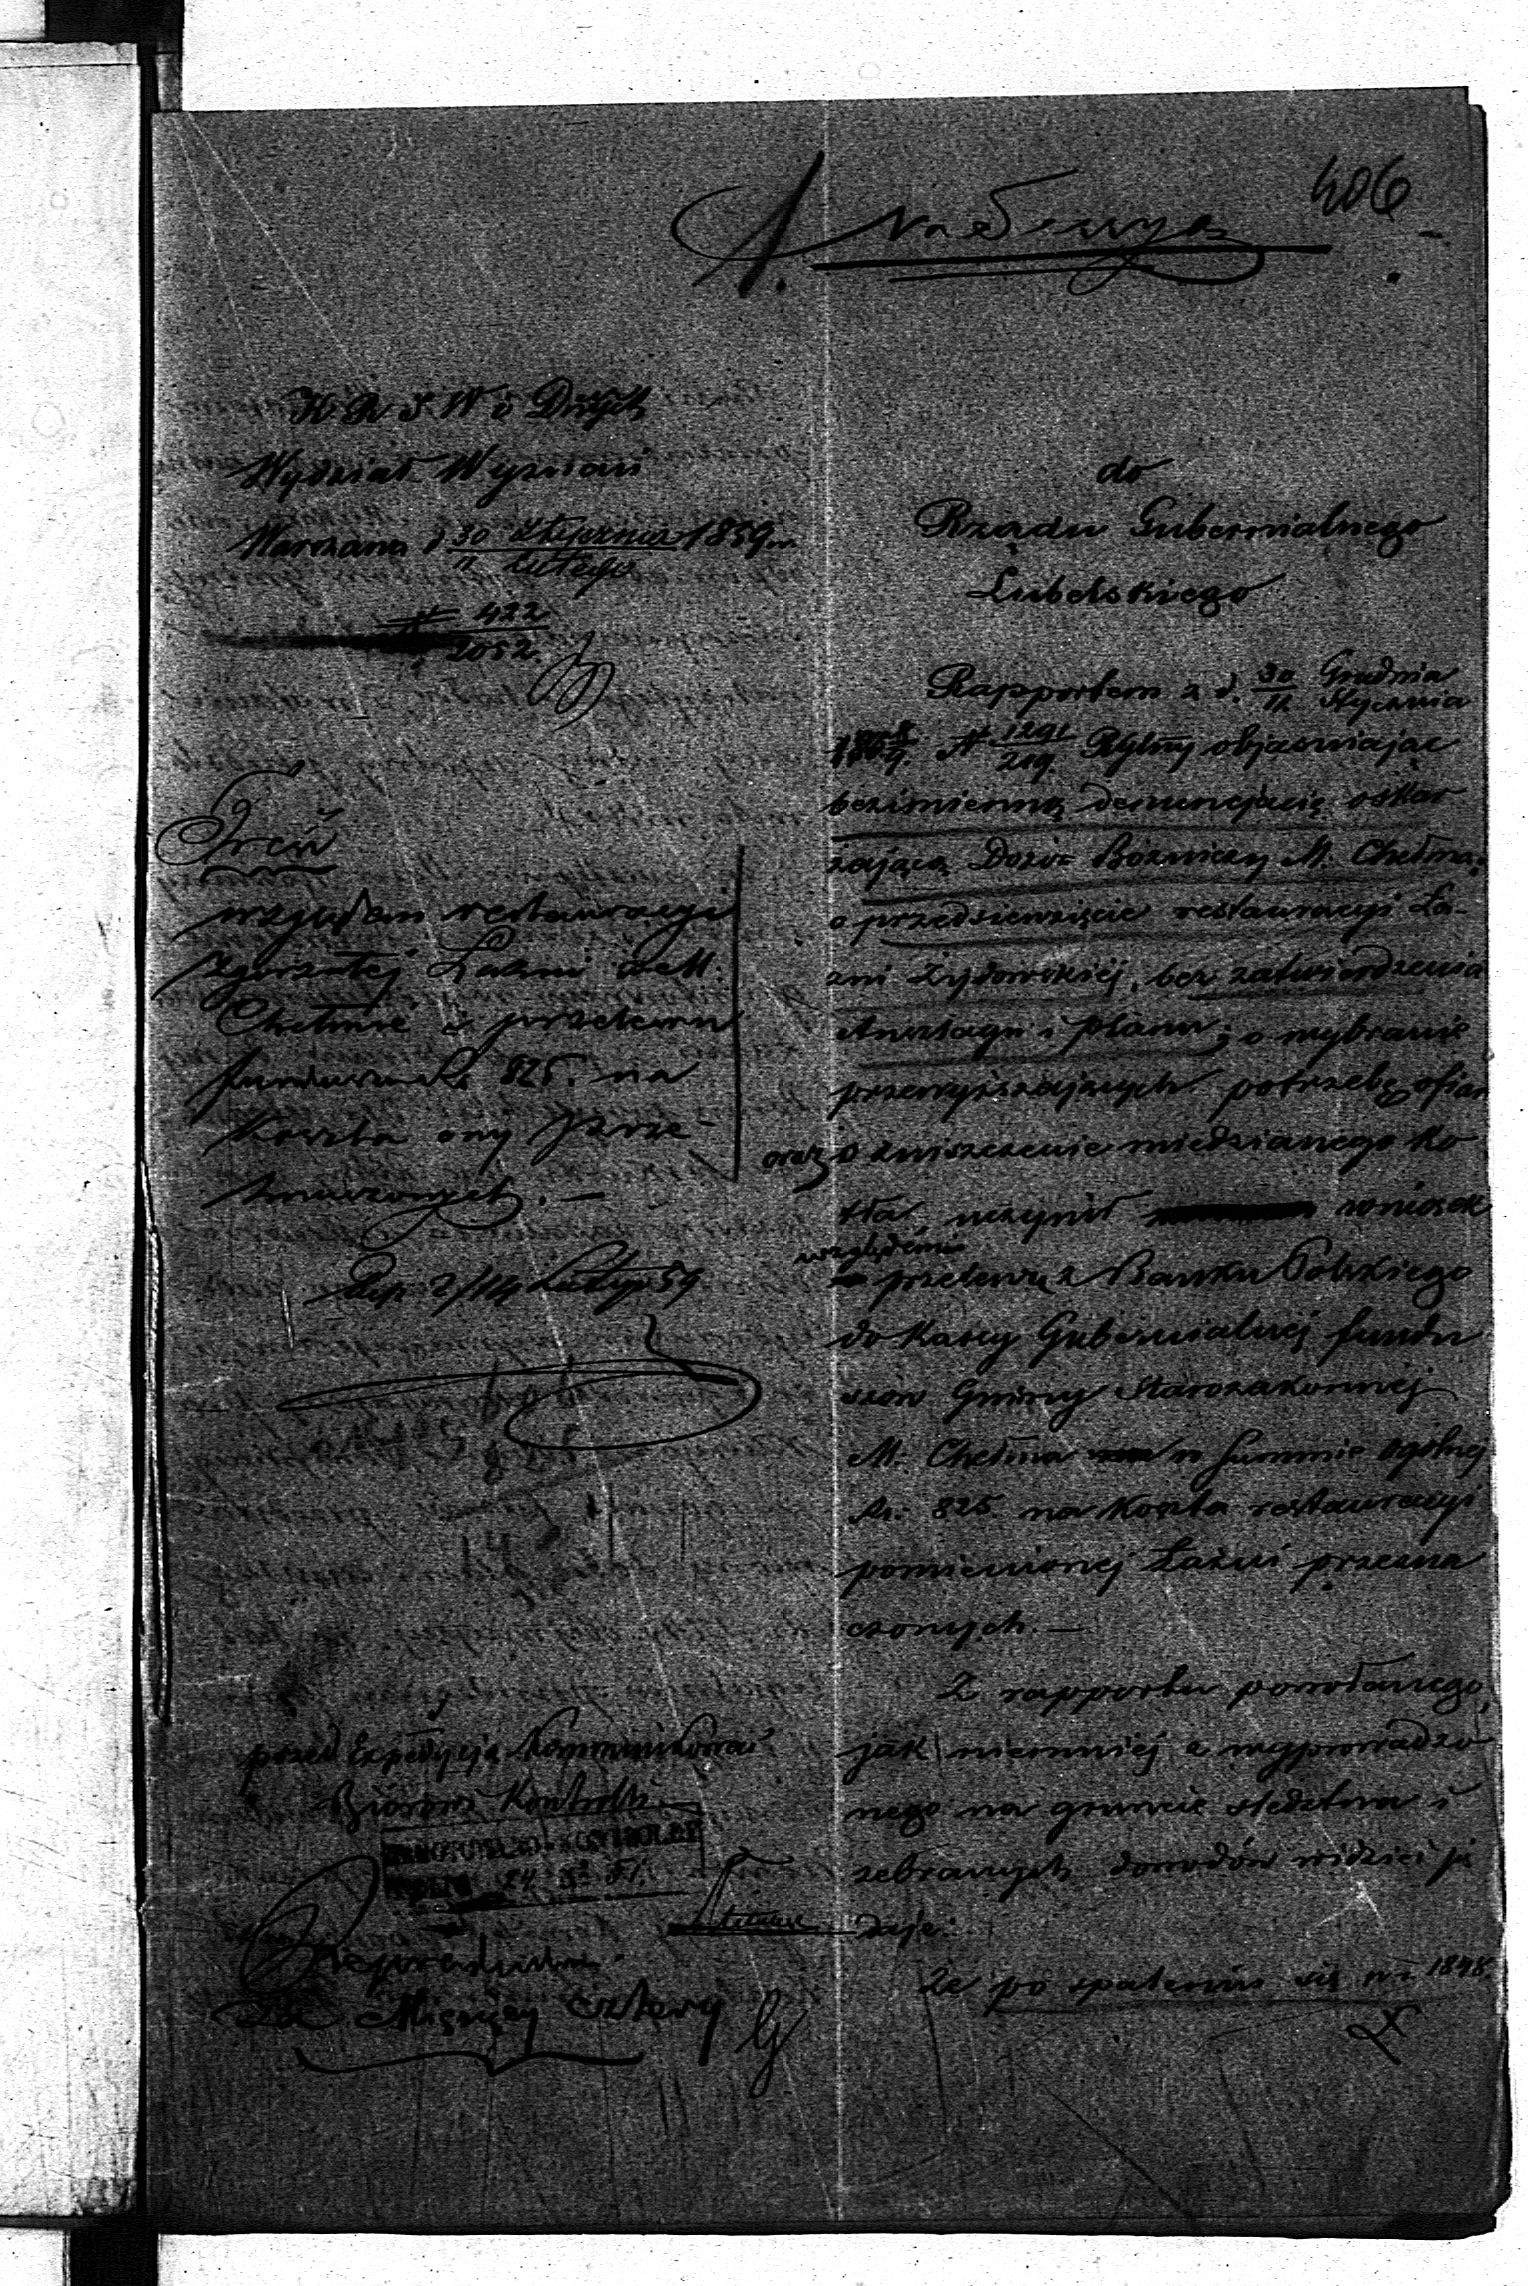 406
K R S W i Dnych
Wydział Wyznań
Warszawa d 30 Stycznia 1859 r.
11 Lutego
№ 422
2052.
Treść
względem restauracyi
zgorzałej Łaźni w M.
Chełmie i przelewu
funduszu Rs 825. na
Koszta ony prze-
znaczonych. —
Exp 2/14 Lutego 59
przed Expedycją Kommunikować
Biórowi Kontrolli
24
Za Miesięcy cztery
do
Rządu Gubernialnego
Lubelskiego
Rapportem z d. 30 Grudnia
11 Stycznia
185 8/9 № 1291
219. objasniając
bezimienną denuncjacię oskar
żającą Dozór Bóźniczy M. Chełma,
o przedsięwzięcie restauracyi Ła-
zni Żydowskiej, bez zatwierdzenia
Anszlagu i planu; o wybranie
przewyższających potrzebę ofiar
oraz o zniszczenie miedzianego Ko
tła, uczynił wniosek
względem
przelewu z Banku Polskiego
do Kassy Gubernialnej fundu
szów Gminy Starozakonnej
M. Chełma w Summie ogólnej
Rs. 825. na Koszta restauracyi
pomienionej Łaźni przezna
czonych. —
Z rapportu powołanego,
jak niemniej z wyprowadzo
nego na gruncie śledztwa i
zebranych dowodów widzieć się
daje:
Że po spaleniu się w r. 1848